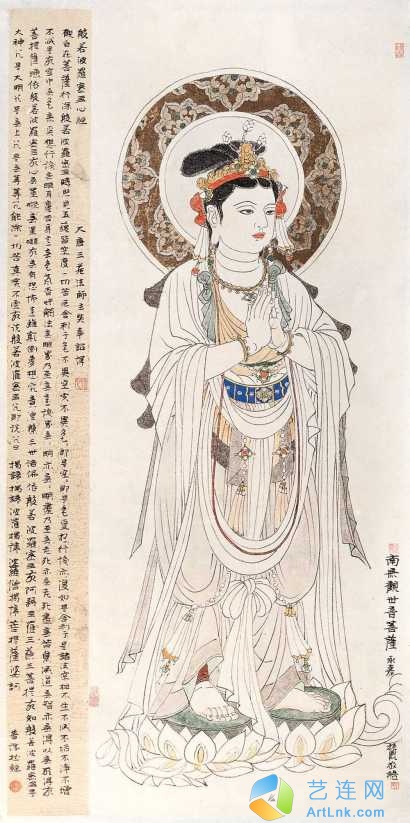 般若波羅蜜多心經 大唐三藏法師玄奘奉詔譯
觀自在菩薩行深般若波羅蜜多時照見五蘊皆空度一切苦厄舍利子色不異空空不異色色即是空空即是色受想行識亦復如是舍利子是諸法空相不生不滅不垢不淨不增
不減是故空中无色无受想行識无眼耳鼻舌身意无色聲香味觸法无眼界乃至无意識界无无明亦无无明盡乃至无老死亦无老死盡无苦集滅道无智亦无得以无所得故
菩提薩埵依般若波羅蜜多故心无罣礙无罣礙故无有恐怖遠離顛倒夢想究竟涅槃三世諸佛依般若波羅蜜多故得阿耨多羅三藐三菩提故知般若波羅蜜多是
大神咒是大明咒是无上咒是无等等咒能除一切苦真實不虛故說般若波羅蜜多咒即說咒曰 揭諦揭諦 波羅揭諦 波羅僧揭諦 菩提薩婆訶
南无觀世音菩薩
艺连网